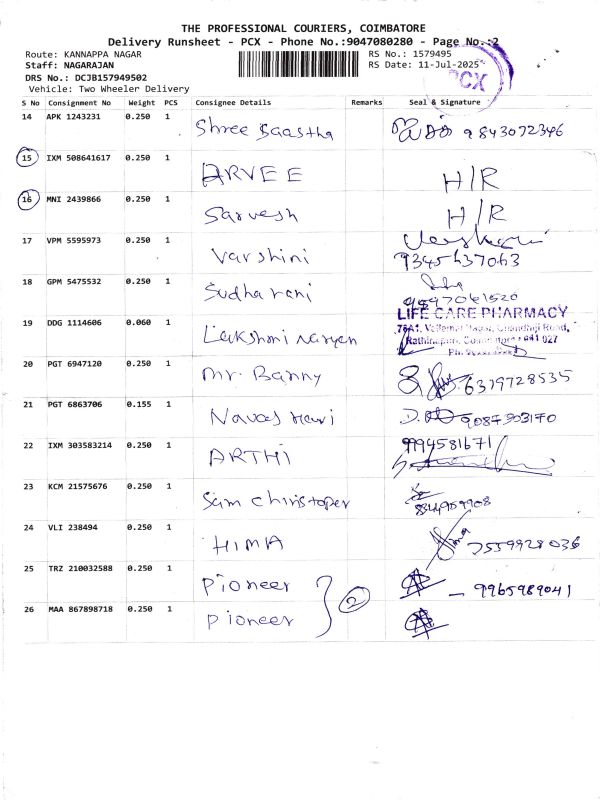 THE PROFESSIONAL COURIERS, COIMBATORE
Delivery Runsheet - PCX - Phone No.:9047080280 - Page No.:2
Route: KANNAPPA NAGAR RS No.: 1579495
Staff: NAGARAJAN RS Date: 11-Jul-2025
DRS No.: DCJB157949502
Vehicle: Two Wheeler Delivery
PCX
S No Consignment No Weight PCS Consignee Details Remarks Seal & Signature
14 APK 1243231 0.250 1 Shree Saastha 9843072346
15 IXM 508641617 0.250 1 ARVEE H/R
16 MNI 2439866 0.250 1 Sarvesh H/R
17 VPM 5595973 0.250 1 Varshini
9345637063
18 GPM 5475532 0.250 1 Sudha rani
19 DDG 1114606 0.060 1 Lakshmi naryen LIFE CARE PHARMACY
20 PGT 6947120 0.250 1 Mr. Banny 6379728535
21 PGT 6863706 0.155 1 9087303170
22 IXM 303583214 0.250 1 ARTHI 9994581671
23 KCM 21575676 0.250 1 Sam Christoper
24 VLI 238494 0.250 1 HIMA 7559928036
25 TRZ 210032588 0.250 1 Pioneer 2 9965989041
26 MAA 867898718 0.250 1 Pioneer